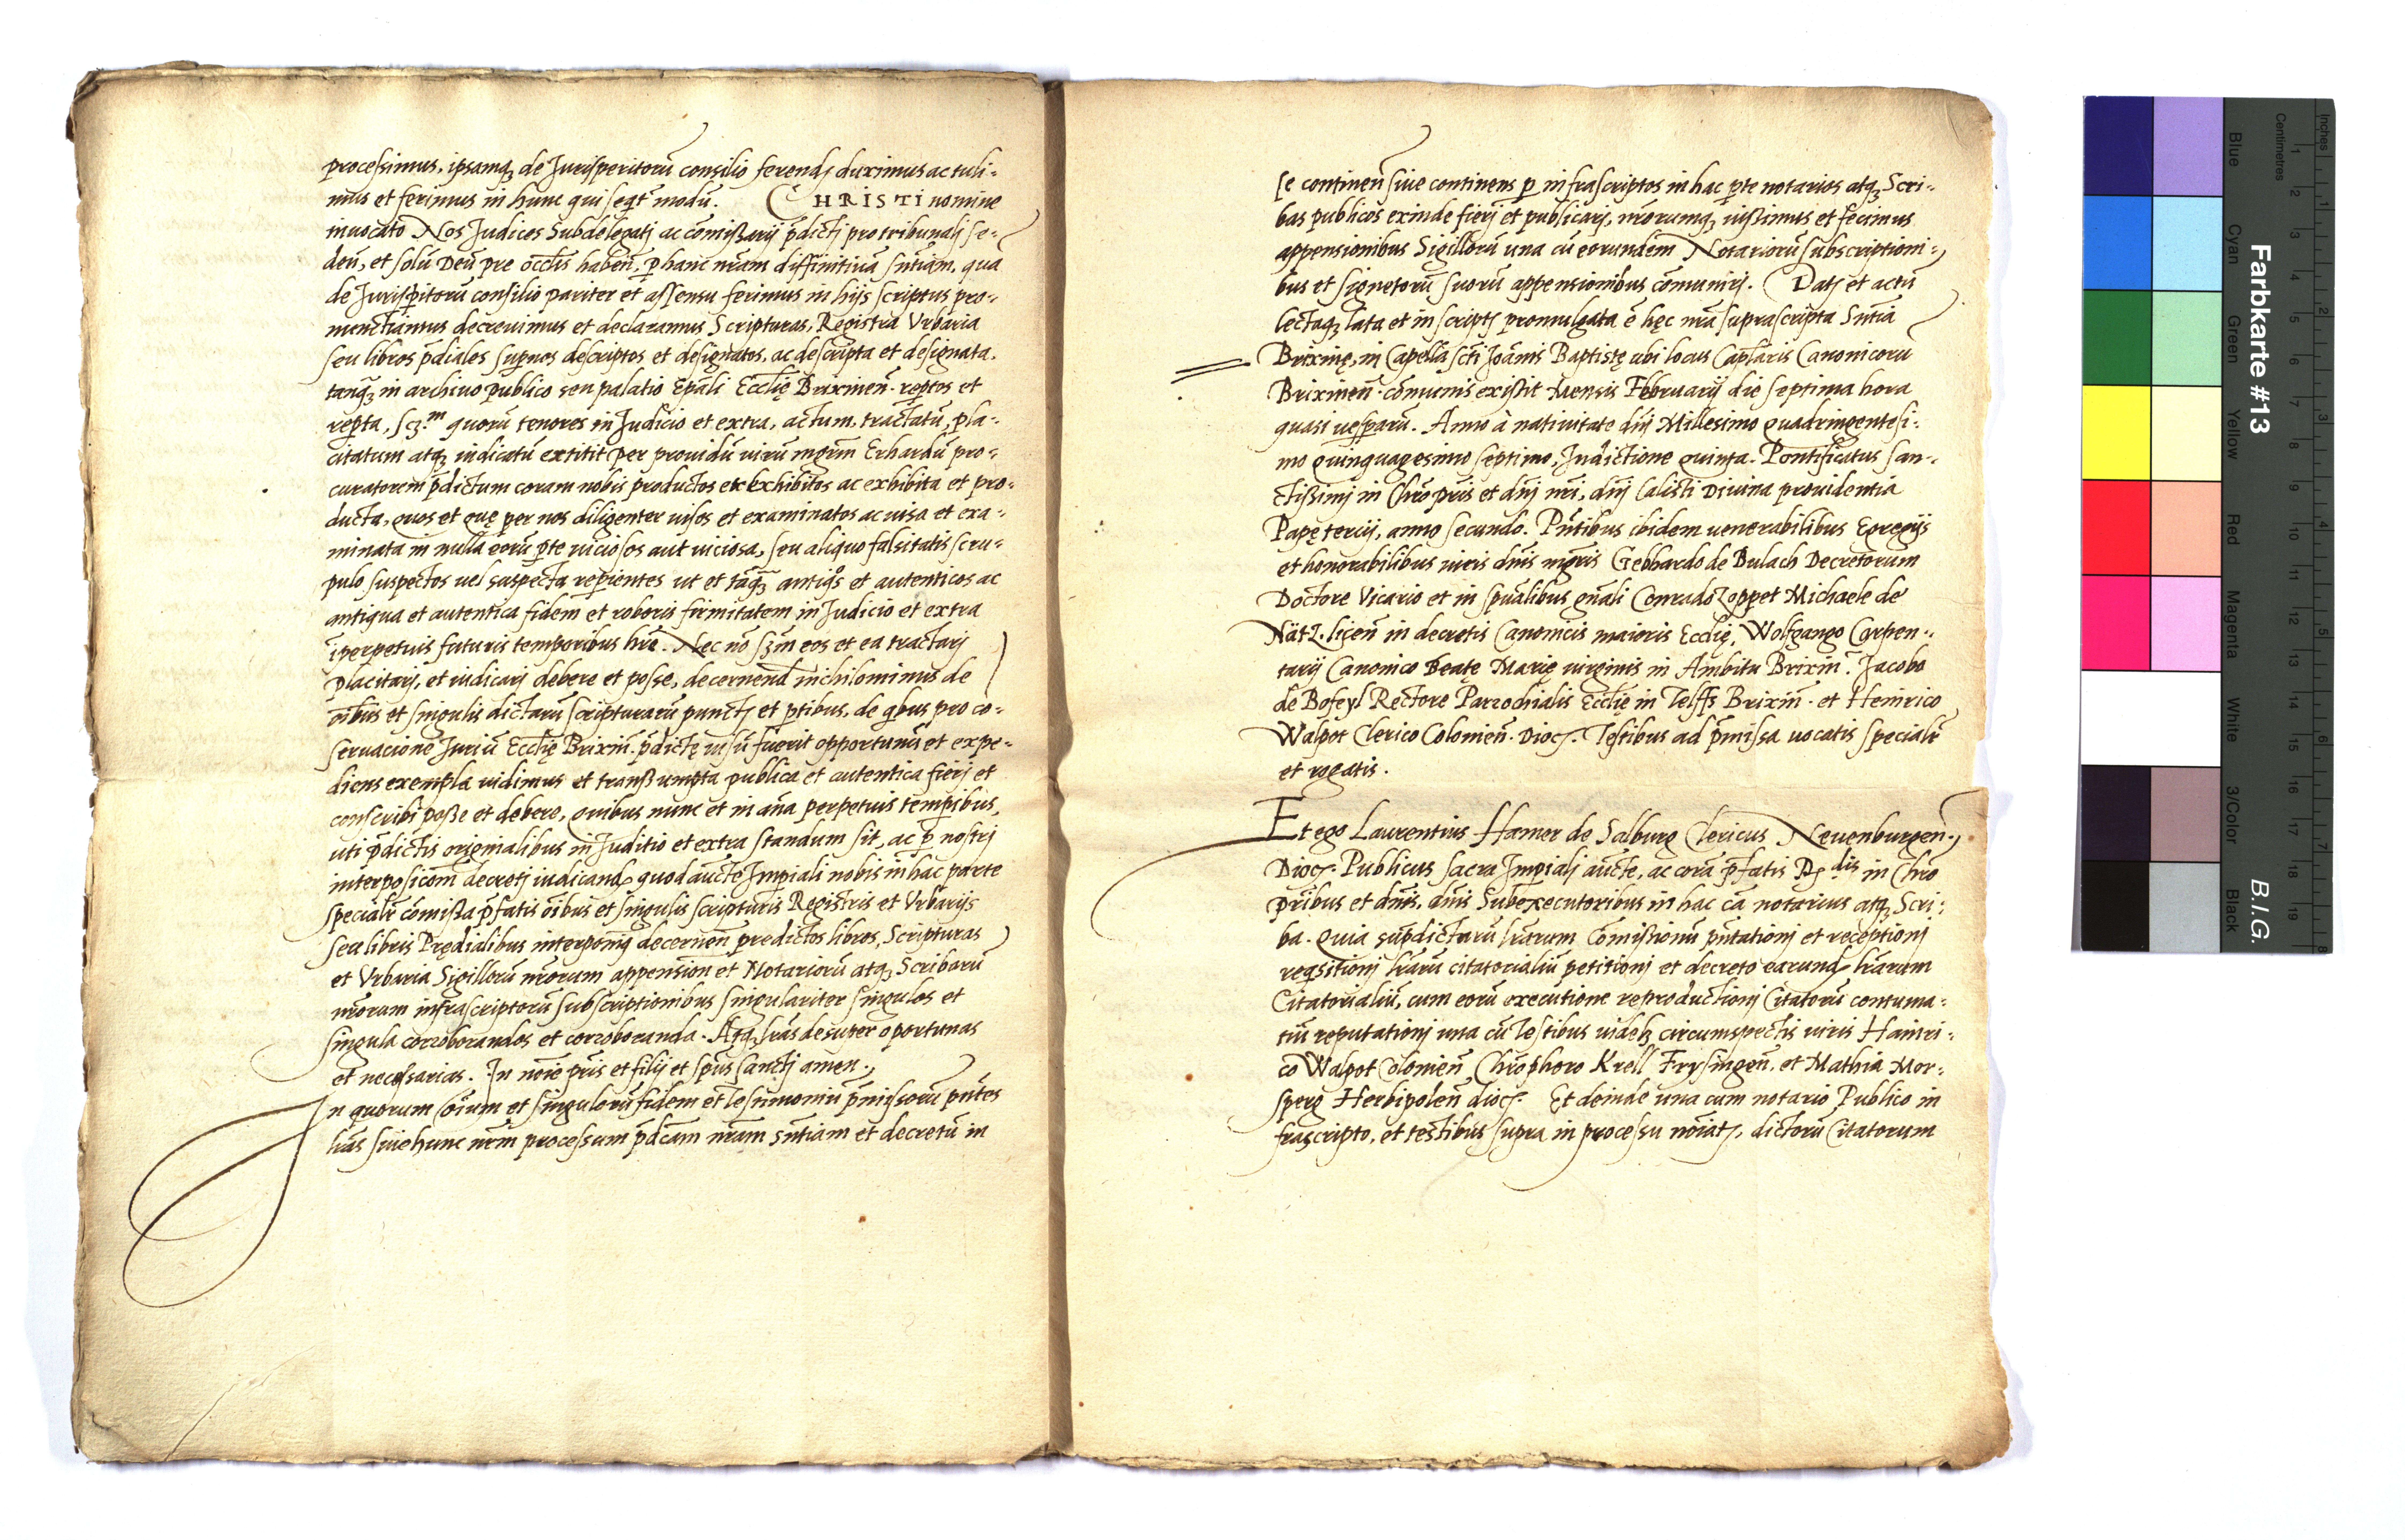 processimus, ipsamqꝫ de Jurisperitorū consilio ferendꝭ duximus ac tuli-
mus et ferimus in hunc qui seqr̄ modū. CHRISTI nomine
inuocato Nos Judices Subdelegatj ac com̄issarij p̄dictj pro tribunalj se-
den̄, et solū Deū pre occlis haben̄, ꝑ hanc nr̄am diffinitiuā sn̄tiam, qua
de Jurisp̄itorū consilio pariter et assensu ferimus in hijs scriptus pro-
nunctiamus decreuimus et declaramus Scripturas, Registra Vrbaria
seu libros p̄diales sup̄nos descriptos et designatos, ac descripta et designata.
tanqꝫ in archiuo publico seu palatio Ep̄ali Ecclię Brixinen̄. rep̄tos et
rep̄ta, scꝫ.m quorū tenores in Judicio et extra, actum, tractatū, pla-
citatum atqꝫ indicatū extitit per prouidū uirū mgrm̄ Erhardū pro-
curatorem p̄dictum coram nobis productos et exhibitos ac exhibita et pro-
ducta, quos et quę per nos diligenter uisos et examinatos ac uisa et exa-
minata in nulla eorū ꝑte uiciosos aut uiciosa, seu aliquo falsitatis scru-
pulo suspectos uel suspecta rep̄ientes ut et tāqꝫ antiqᵒs et autenticos ac
antiqua et autentica fidem et roboris firmitatem in Judicio et extra
ī perpetuis futuris temporibus hr̄e. Nec nō sꝫm eos et ea tractarj
placitarj, et iudicarj debere et posse, decernend inichilominus de
oīibus et singulis dictarū scripturarū punctꝭ et ꝑtibus, de qbus pro co-
seruacione Juriū Ecclię Brixin̄. p̄dictę uisū fuerit opportunū et expe-
diens exempla uidimus et transsumpta publica et autentica fierj et
conscribi posse et debere, quibus nunc et in ān̄a perpetuis temp̄ibus,
uti p̄dictis originalibus in Juditio et extra standum sit, ac ꝑ nostrj
interposicōm̄ decretj iudicandꝭ quod auct̄e Imp̄iali nobis in hac parte
specialr̄ com̄issa p̄fatis oībus et singulis scripturis Registris et Vrbarijs
seu libris Prędialibus interponīꝗ decernen̄ predictos libros, Scripturas
et Vrbaria Sigillorū nr̄orum appension̄ et Notariorū atqꝫ Scribarū
nr̄orum infrascriptorū subscriptionibus singulariter singulos et
singula corroborandos et corroboranda. Atqꝫ lr̄as desuper oportunas
et necessarias. In noīe pr̄is et filij et spūs sanctj amen.
In quorum oīum et singulorū fidem et testimoniū p̄missorū pn̄tes
lr̄as siue hunc nr̄m processum p̄dc̄am nr̄am sn̄tiam et decretū in
se continen̄ siue continens ꝑ infrascriptos in hac ꝑte notarios atqꝫ Scri-
bas publicos exinde fierj et publicarj, nr̄orumqꝫ iussimus et fecimus
appensionibus Sigillorū una cū eorundem Notariorū subscriptioni-
bus et signetorū suorū appensionibus com̄unirj. Datꝭ et actū
lectaqꝫ lata et in scriptꝭ promulgata ē hęc nrā suprascripta Sn̄tia
Brixinę, in Capella scti Joānis Baptistę ubi locus Caplaris Canonicorū
Brixinen̄. com̄unis existit Mensis Februarij die septima hora
quasi uesparū. Anno à natiuitate dnj Millesimo quadringentesi-
mo quinquagesimo septimo, Indictione quinta. Pontificatus san-
ctissimj in Chrō pris et dnj nrj, dnj Calisti Diuina prouidentia
Papę tercij, anno secundo. Pn̄tibus ibidem uenerabilibus Egregijs
et honorabilibus uiris dnīs mgris Gebhardo de Bulach Decretorum
Doctore Vicario et in spūalibus gn̄ali Conrado Zopp et Michaele de
Nätz. licen̄ in decretis Canonicis maioris Ecclię, Wolfgango Carpen-
tarij Canonico Beatę Marię uirginis in Ambitu Brixin̄. Jacobo
de Bofeyl Rectore Parrochialis Ecclię in Telffs Brixin̄. et Heinrico
Walpot Clerico Colonien̄. Diocꝭ. Testibus ad p̄missa uocatis specialr̄
et rogatis.
Et ego Laurentius Hamer de Salburg Clericus Neuenburgen̄.
Diocꝭ. Publicus sacra Imp̄ialj auct̄e, ac corā p̄fatis Dꝭ dis in Chrō
pr̄ibus et dnīs, dnīs Subexecutoribus in hac cā notarius atqꝫ Scri-
ba. Quia sup̄dictarū lr̄arum Com̄issionū pn̄tationj et receptionj
reqsitionj lr̄arū citatorialiū petitionj et decreto earundꝭ lr̄arum
Citatorialiū, cum eorū executione reproductionj Citatorū contuma-
tiū reputationj una cū testibus uidelꝫ circumspectis uiris Hainri-
co Walpot Colonien̄ Chrōphoro Krell Frysingen̄. et Mathia Mor-
sperg Herbipolen̄ diocꝭ. Et deinde una cum notario Publico in
frascripto, et testibus supra in processu nōiatꝭ, dictorū Citatorum
Farbkarte #13
B.I.G.
Blue
Cyan
Green
Yellow
Red
Magenta
White
3/Color
Black
Centimetres
Inches
1 2 3 4 5 6 7 8 9 10 11 12 13 14 15 16 17 18 19
1 2 3 4 5 6 7 8